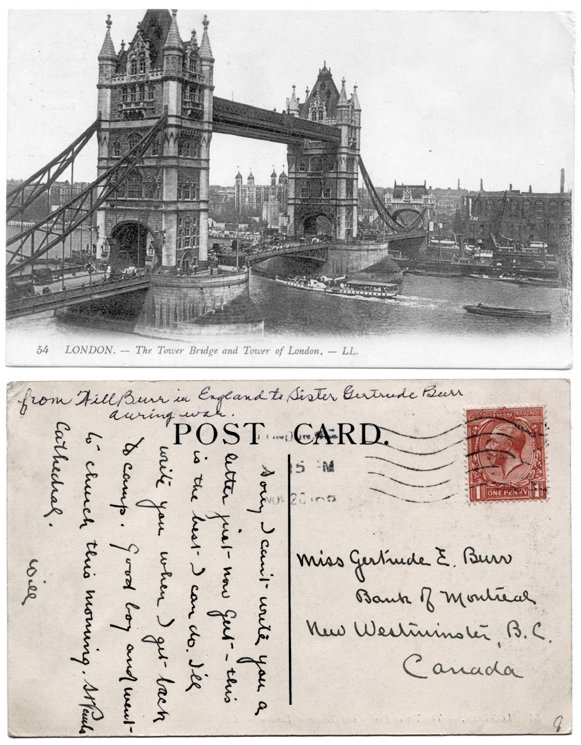 54 LONDON. — The Tower Bridge and Tower of London. — LL.
from Will Burr in England to Sister Gertrude Burr
during war.
POST CARD.
15 PM
POSTAGE
ONE PENNY
1
Sorry I can't write you a
letter just now Gert - this
is the best I can do. I'll
write you when I get back
to camp. Good boy and went
to church this morning. St Pauls
Cathedral.
Will
Miss Gertrude E. Burr
Bank of Montreal
New Westminster, B.C.
Canada